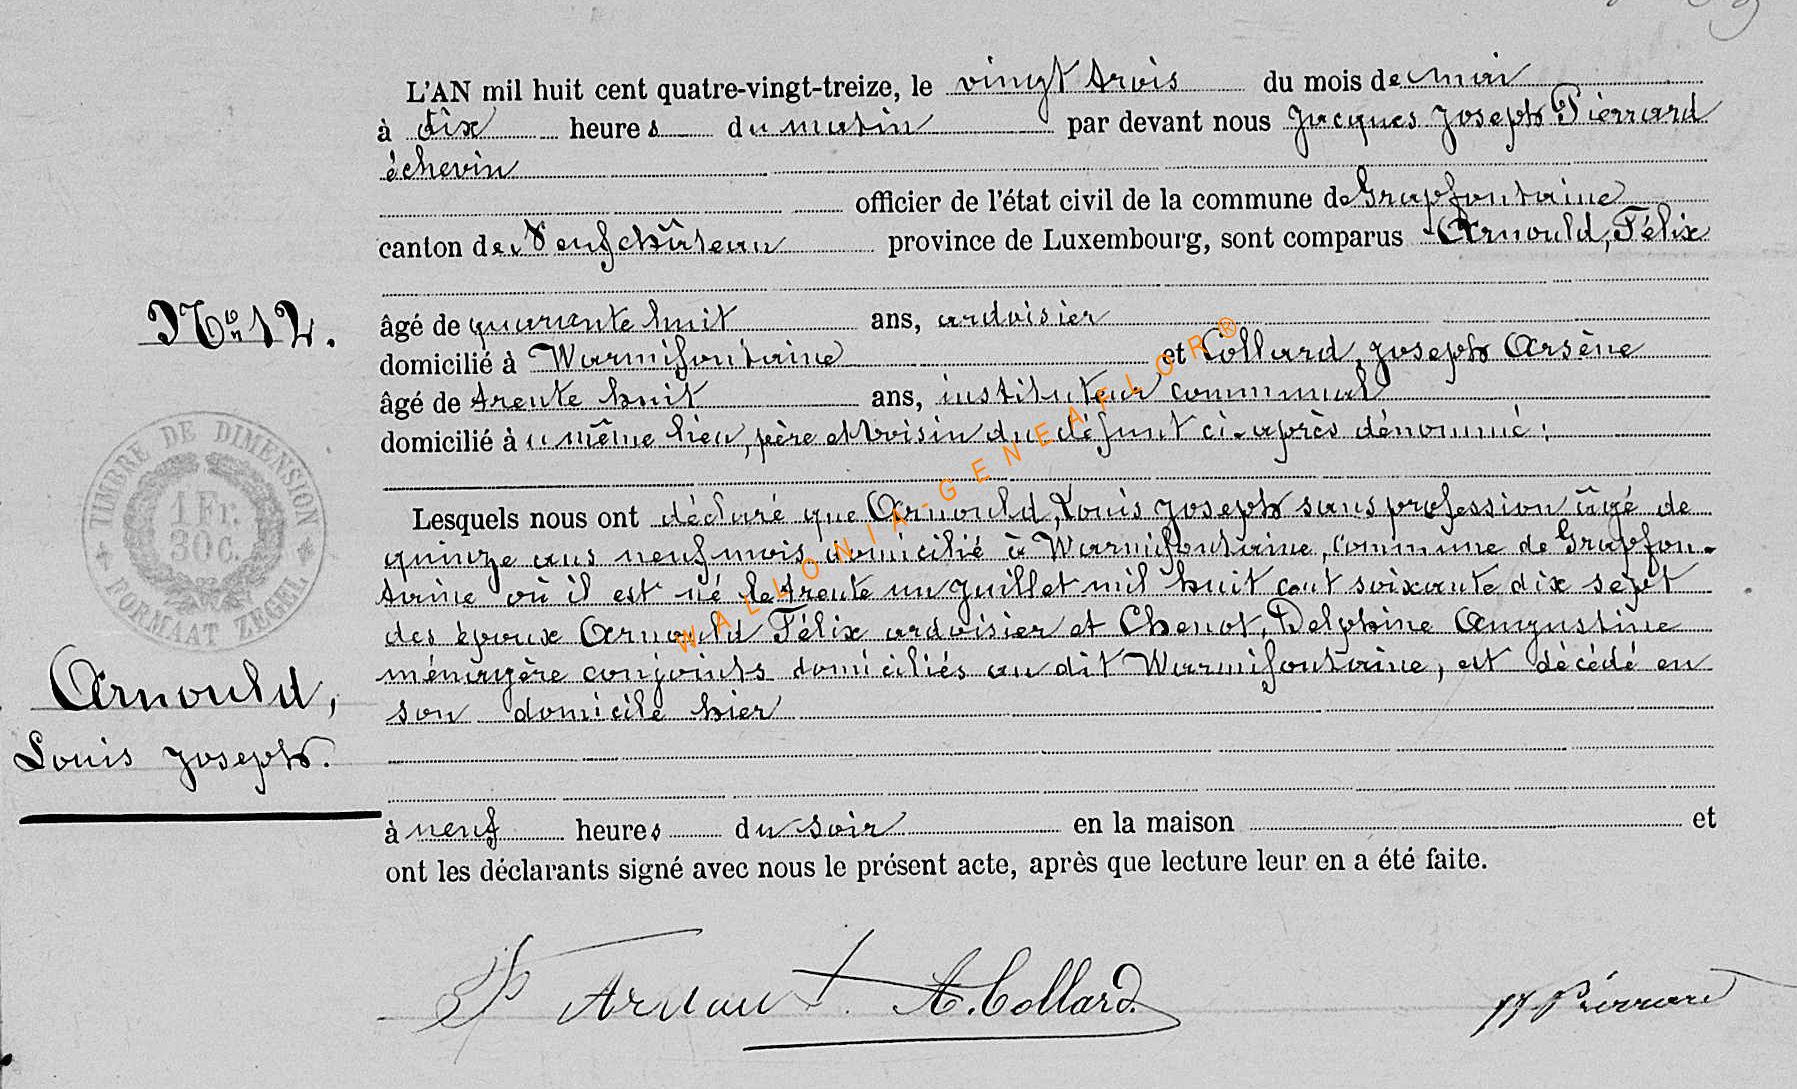 L'AN mil huit cent quatre-vingt-treize, le vingt trois du mois de mai
à dix heures du matin par devant nous Jacques Joseph Piérrard
échevin
officier de l'état civil de la commune de Grapfontaine
canton de Neufchâteau province de Luxembourg, sont comparus Arnould, Félix
No 12.
âgé de quarante huit ans, ardoisier
domicilié à Warmifontaine et Collard, Joseph Arsène
âgé de trente huit ans, instituteur communal
domicilié à u même lieu, père et voisin du défunt ci-après dénommé:
TIMBRE DE DIMENSION
1 Fr.
30 C.
FORMAAT ZEGEL
Lesquels nous ont déclaré que Arnould, Louis Joseph sans profession âgé de
quinze ans neuf mois domicilié à Warmifontaine, commune de Grapfon-
taine où il est né le trente un juillet mil huit cent soixante dix sept
des époux Arnould Félix ardoisier et Chenot, Delphine Augustine
ménagère conjoints domiciliés au dit Warmifontaine, est décédé en
son domicile hier
Arnould,
Louis Joseph.
à neuf heures du soir en la maison et
ont les déclarants signé avec nous le présent acte, après que lecture leur en a été faite.
Arnout. A. Collard. JJ Piérrard
WALLONIA-GENEAFLOR®